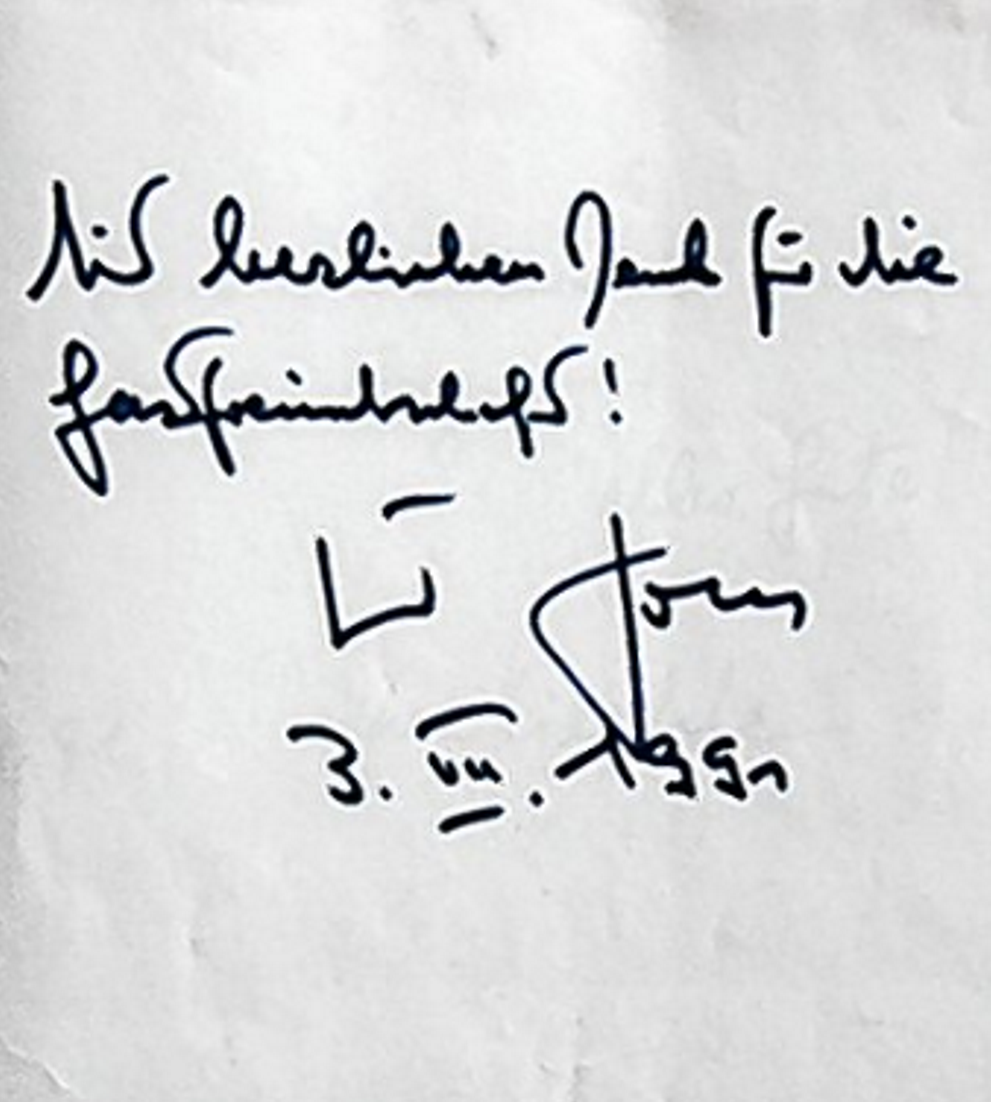 Mit herzlichem Dank für die
Gastfreundschaft!
3. VII. 1991